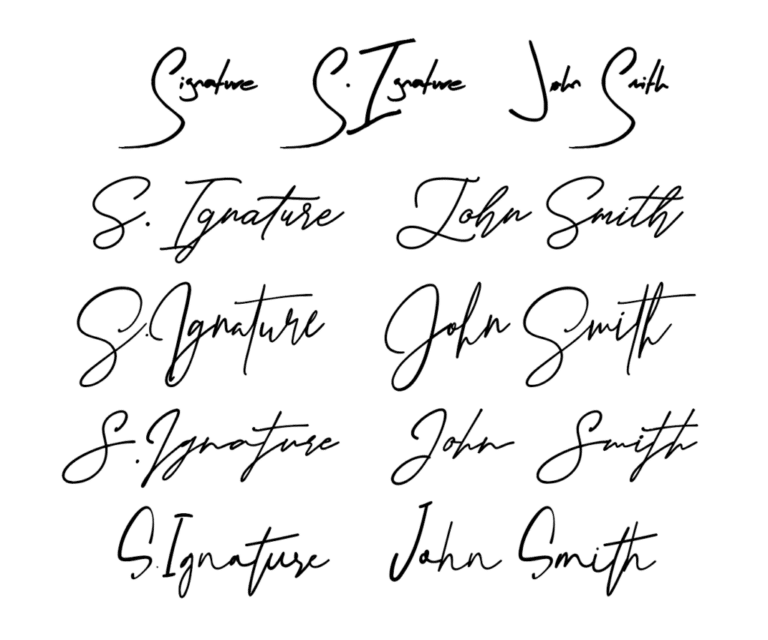 Signature S. Ignature John Smith
S. Ignature John Smith
S. Ignature John Smith
S. Ignature John Smith
S. Ignature John Smith